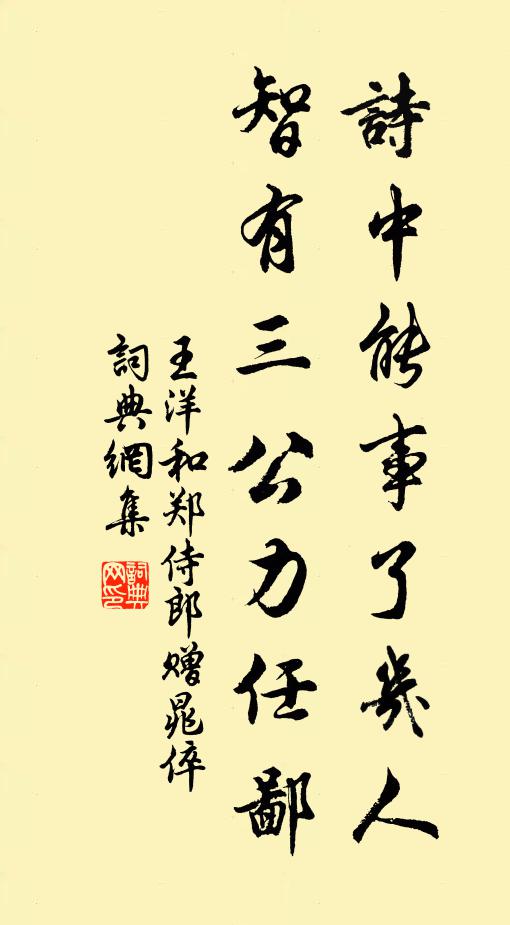 詩中能事了幾人
智有三公力任鄙
王洋和郑侍郎赠晁倅
詞典網集
詞典
网印